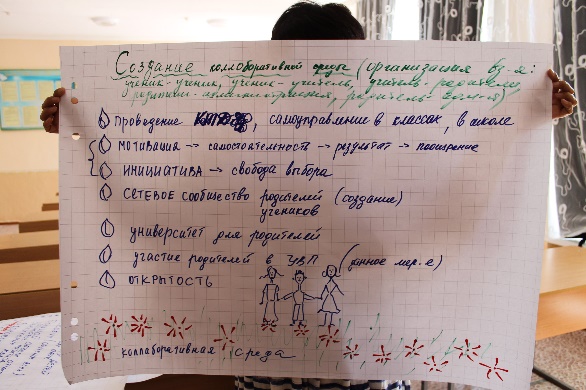 Создание коллаборативной среды (организация вз-я:
ученик-ученик, ученик-учитель, учитель-родители,
родители-администрация, родитель-
Проведение , самоуправление в классах, в школе
мотивация → самостоятельность → результат → поощрение
инициатива → свобода выбора
сетевое сообщество родителей (создание)
учеников
университет для родителей
участие родителей в УВП ( мер-е)
открытость
коллаборативная среда